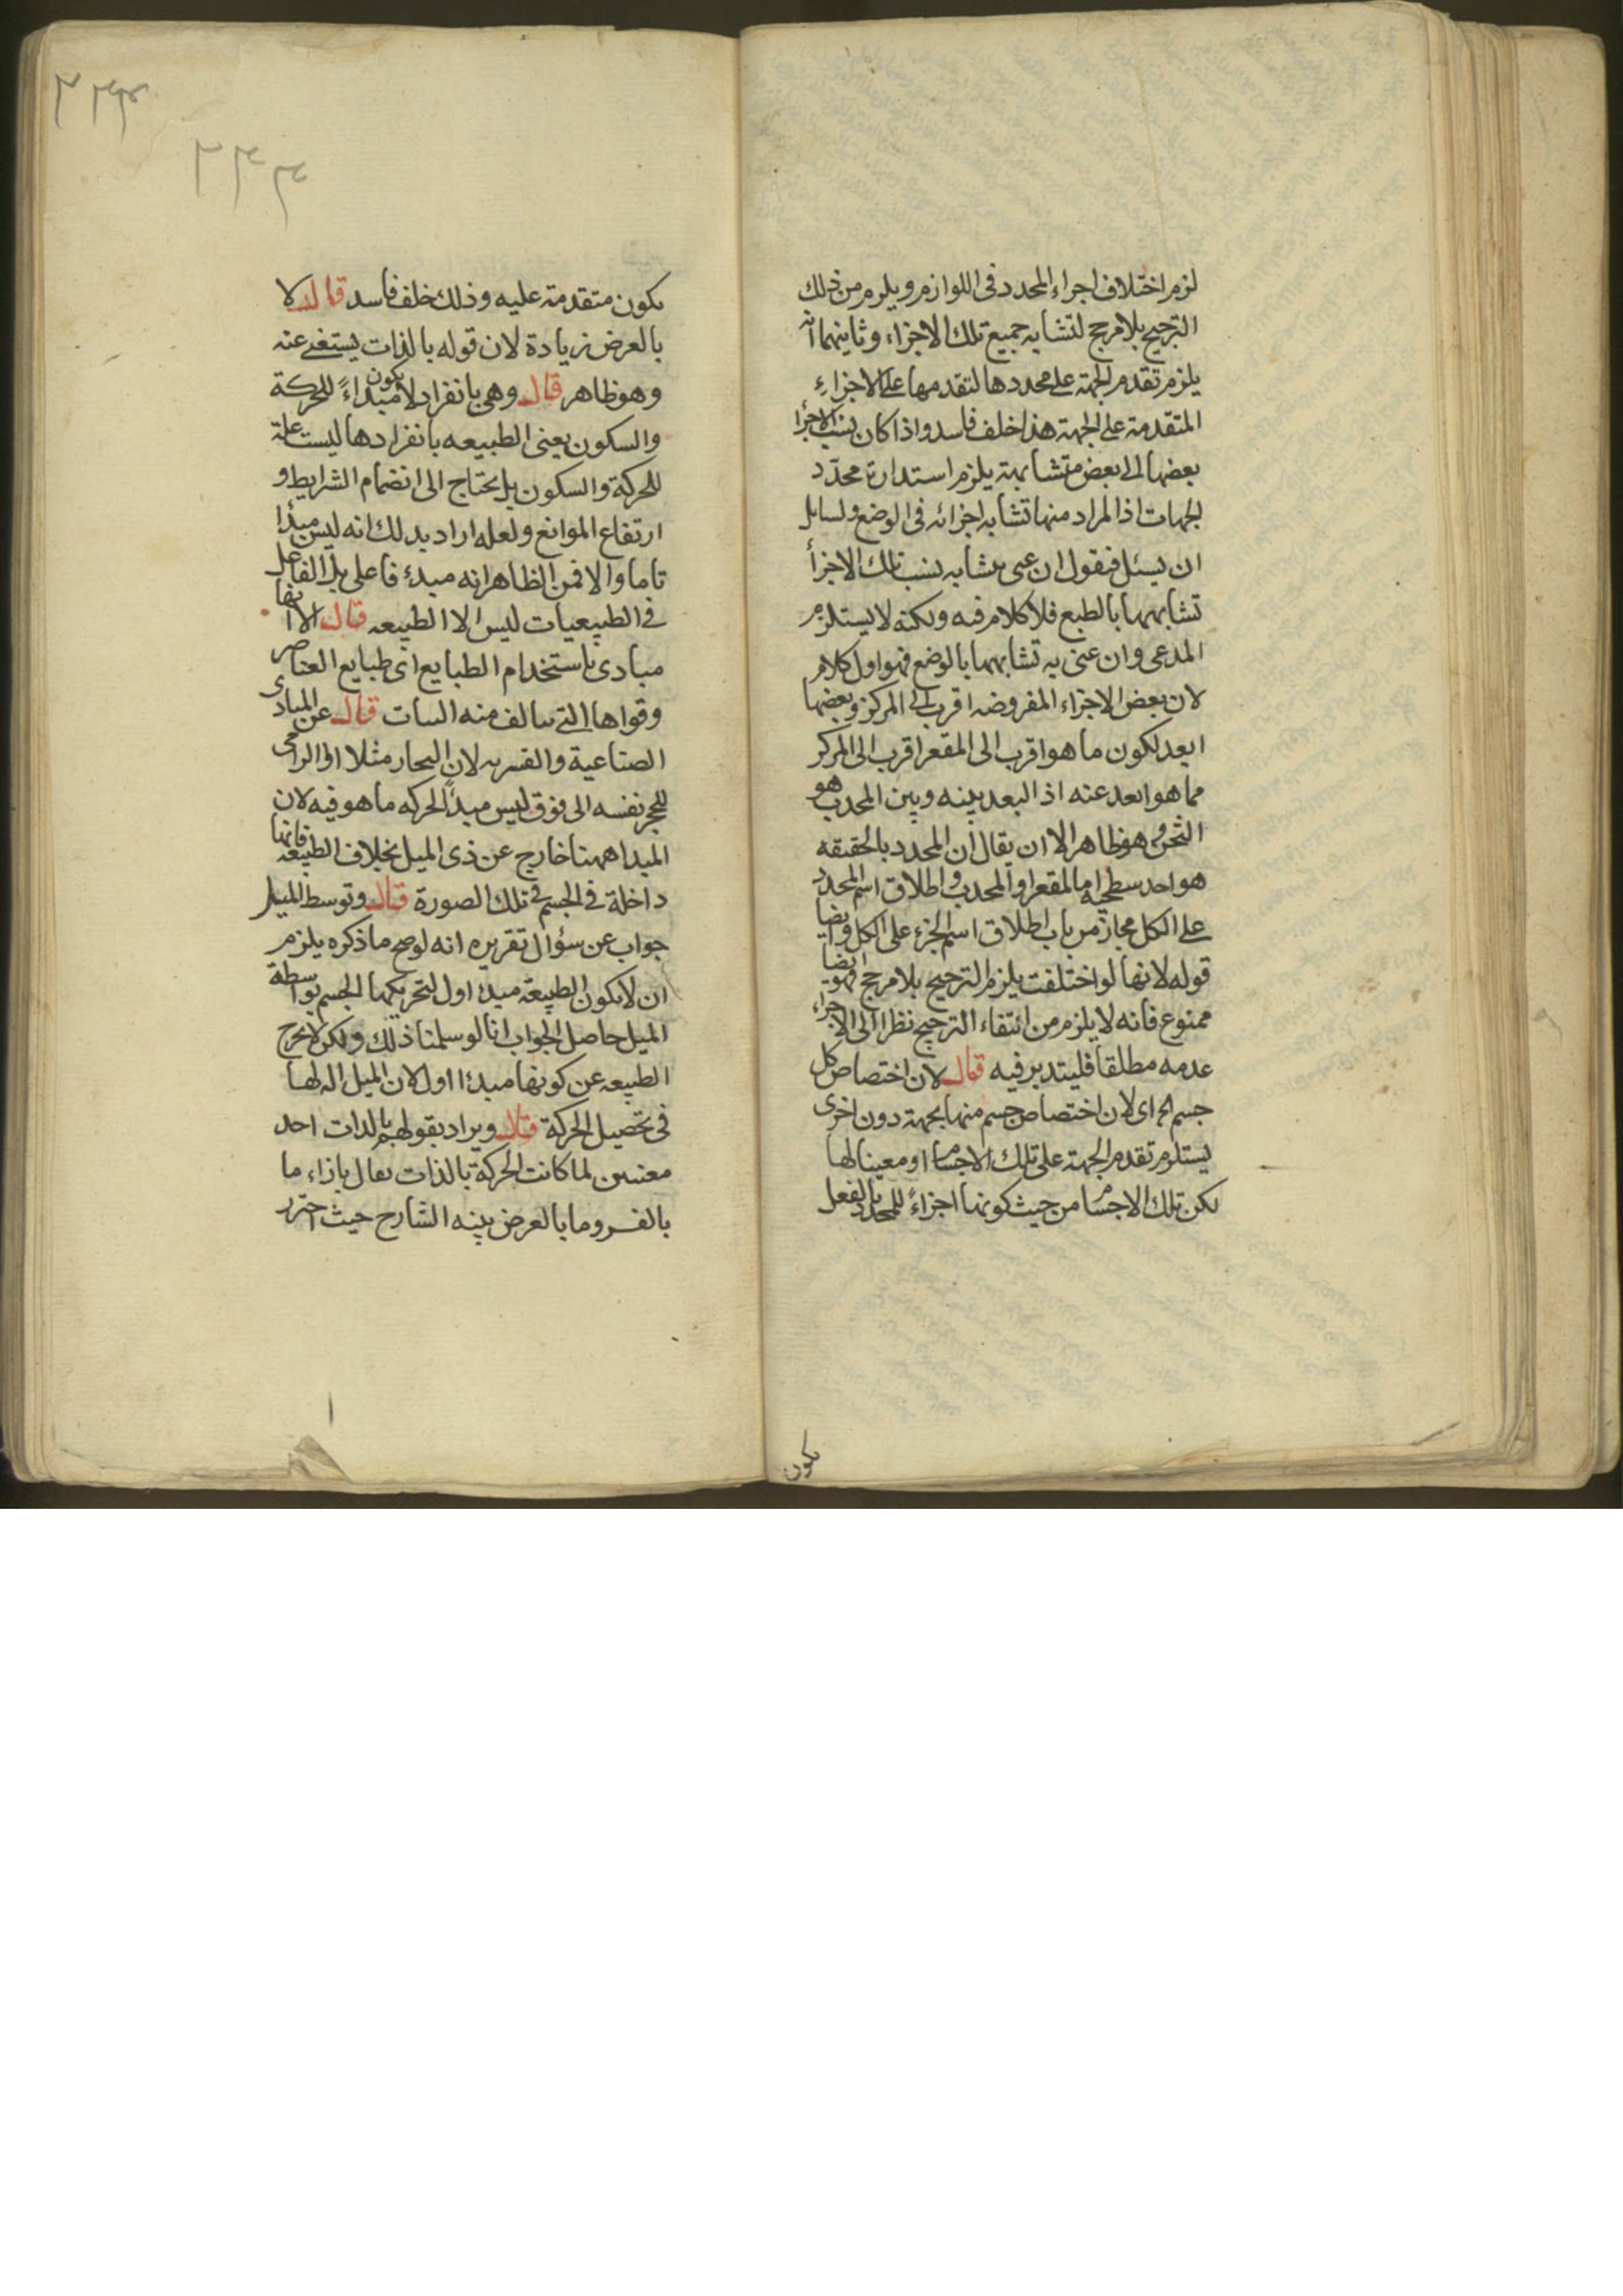 لزم اختلاف اجزاء المحدد فى اللوازم ويلزم من ذلك
الترجيح بلا مرجح لتشابه جميع تلك الاجزاء وثاينهما انه
يلزم تقدم الجهة على محددها لتقدمها على الاجزاء
المتقدمة على الجهة هذا خلف فاسد واذا كان نسب الاجزا
بعضها الى بعض متشابهة يلزم استدارة محدّد
الجهات اذ المراد منها تشابه اجزائه فى الوضع ولسايل
ان يسئل فيقول ان عنى بتشابه نسب تلك الاجزأ
تشابهها بالطبع فلا كلام فيه ولكنه لا يستلزم
المدعى وان عنى به تشابهها بالوضع فهو اول كلام
لان بعض الاجزاء المفروضه اقرب الى المركز وبعضها
ابعد لكون ما هو اقرب الى المقعر اقرب الى المركز
مما هو ابعد عنه اذ البعد بينه وبين المحدب هو
الثخن وهو ظاهر الا ان يقال ان المحدد بالحقيقه
هو احد سطحيه اما المقعر او المحدب واطلاق اسم المحدد
على الكل مجاز من باب اطلاق اسم الجزء على الكل وايضا
قوله لانها لو اختلفت يلزم الترجيح بلا مرجح فهو ايضا
ممنوع فانه لا يلزم من انتفاء الترجيح نظرا الى الاجزاء
عدمه مطلقا فليتدبر فيه قال لان اختصاص كل
جسم الخ اى لان اختصاص جسم منها بجهة دون اخرى
يستلزم تقدم الجهة على تلك الاجسام او معينا لها
لكن تلك الاجسام من حيث كونها اجزاءً للمحدد بالفعل
يكون
يكون متقدمة عليه وذلك خلف فاسد قال لا
بالعرض زيادة لان قوله بالذات يستغنى عنه
وهو ظاهر قال وهى بانفراد لا يكون مبداءً للحركة
والسكون يعنى الطبيعه بانفرادها ليست علة
للحركة والسكون بل يحتاج الى انضمام الشرايط و
ارتفاع الموانع ولعله اراد بذلك انه ليس مبدأ
تاما والا فمن الظاهر انه مبدء فاعلى بل الفاعل
فى الطبيعيات ليس الا الطبيعه قال الا انها
مبادى باستخدام الطبايع اى طبايع العناصر
وقواها التى يتالف منه النبات قال عن المبادى
الصناعية والقسريه لان النجار مثلا او الرامى
للحجر نفسه الى فوق ليس مبدأ لحركه ما هو فيه لان
المبدا ههنا خارج عن ذى الميل بخلاف الطبيعة فانها
داخلة فى الجسم فى تلك الصورة قال وتوسط الميل
جواب عن سؤال تقريره انه لو صح ما ذكره يلزم
ان لا يكون الطبيعة مبدء اول لتحريكها الجسم بواسطة
الميل حاصل الجواب انا لو سلمنا ذلك ولكن لا يخرج
الطبيعه عن كونها مبدءا اول لان الميل اله لها
فى تحصيل الحركة قال ويراد بقولهم بالذات احد
معنيين لما كانت الحركة بالذات يقال بازاء ما
بالقسر وما بالعرض بينه الشارح حيث احترز